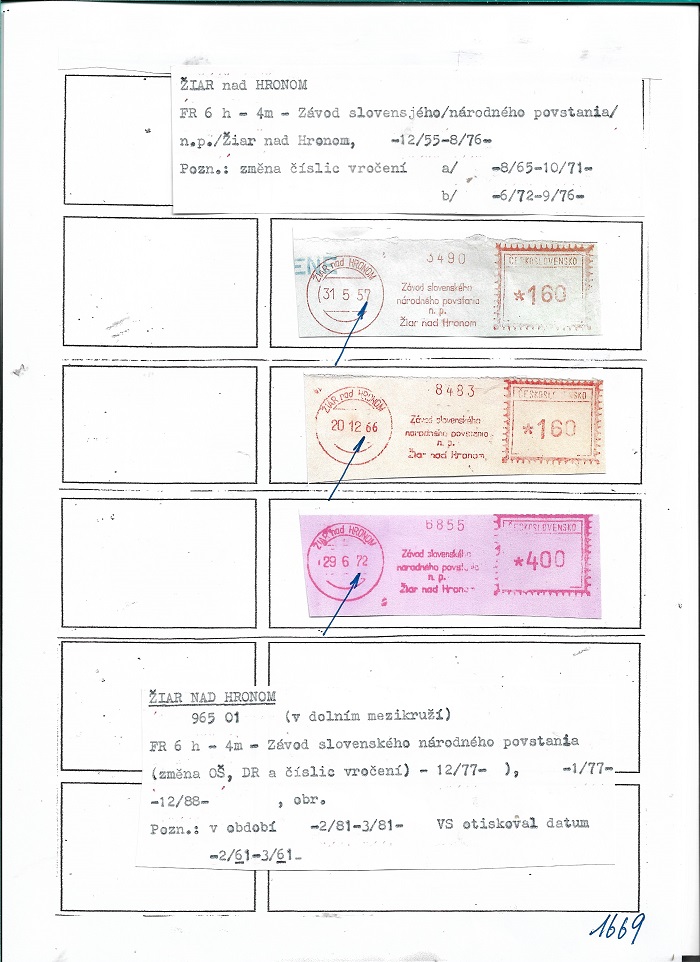 ŽIAR nad HRONOM
FR 6 h - 4m - Závod slovensjého/národného povstania/
n.p./Žiar nad Hronom, -12/55-8/76-
Pozn.: změna číslic vročení a/ -8/65-10/71-
b/ -6/72-9/76-
ENE
ŽIAR nad HRONOM
31 5 57
3490
Závod slovenského
národného povstania
n. p.
Žiar nad Hronom
ČESKOSLOVENSKO
*160
ŽIAR nad HRONOM
20 12 66
8483
Závod slovenského
národného povstania
n. p.
Žiar nad Hronom
ČESKOSLOVENSKO
*160
ŽIAR nad HRONOM
29 6 72
6855
Závod slovenského
národného povstania
n. p.
Žiar nad Hronom
ČESKOSLOVENSKO
*400
ŽIAR NAD HRONOM
965 01 (v dolním mezikruží)
FR 6 h - 4m - Závod slovenského národného povstania
(změna OŠ, DR a číslic vročení) - 12/77- ), -1/77-
-12/88- , obr.
Pozn.: v období -2/81-3/81- VS otiskoval datum
-2/61-3/61-
1669